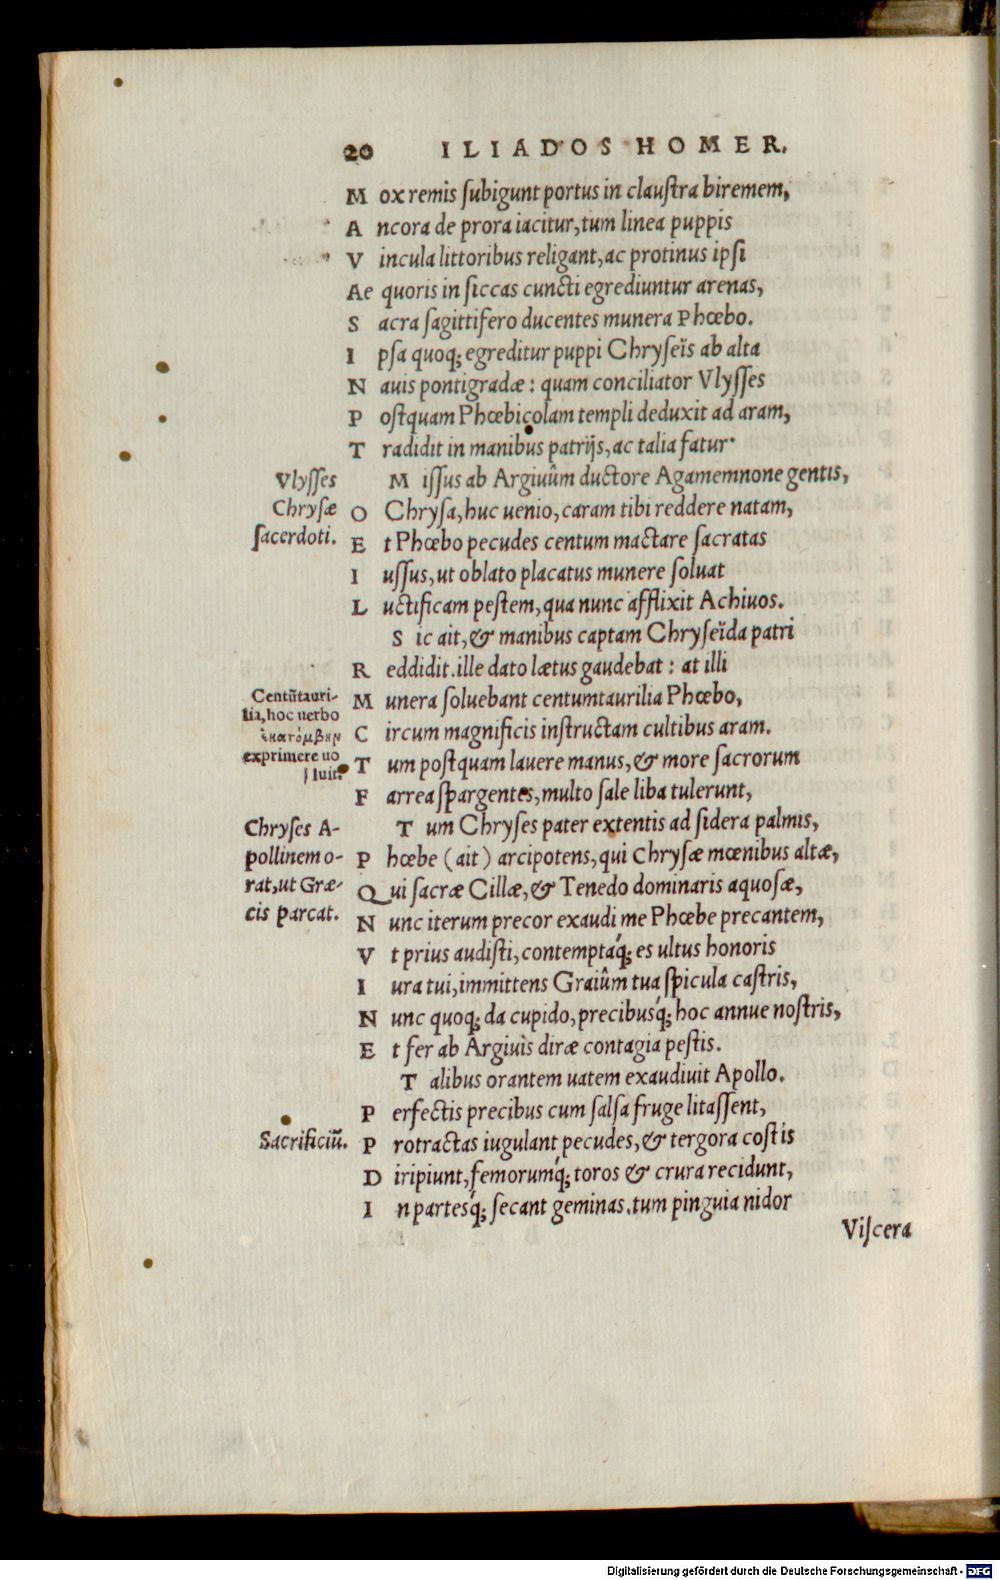 20 ILIADOS HOMER.
Mox remis subigunt portus in claustra biremem,
Ancora de prora iacitur, tum linea puppis
Vincula littoribus religant, ac protinus ipsi
Aequoris in siccas cuncti egrediuntur arenas,
Sacra sagittifero ducentes munera Phœbo.
Ipsa quoq; egreditur puppi Chryseïs ab alta
Nauis pontigradæ: quam conciliator Vlysses
Postquam Phœbicolam templi deduxit ad aram,
Tradidit in manibus patrijs, ac talia fatur·
Vlysses
Chrysæ
sacerdoti.
Missus ab Argiuûm ductore Agamemnone gentis,
O Chrysa, huc uenio, caram tibi reddere natam,
Et Phœbo pecudes centum mactare sacratas
Iussus, ut oblato placatus munere soluat
Luctificam pestem, qua nunc afflixit Achiuos.
Sic ait, & manibus captam Chryseïda patri
Reddidit. ille dato lætus gaudebat: at illi
Centũtauri-
lia, hoc uerbo
ἑκατόμβην
exprimere uo
luit.
Munera soluebant centumtaurilia Phœbo,
Circum magnificis instructam cultibus aram.
Tum postquam lauere manus, & more sacrorum
Farrea spargentes, multo sale liba tulerunt,
Chryses A-
pollinem o-
rat, ut Græ-
cis parcat.
Tum Chryses pater extentis ad sidera palmis,
Phœbe (ait) arcipotens, qui Chrysæ mœnibus altæ,
Qui sacræ Cillæ, & Tenedo dominaris aquosæ,
Nunc iterum precor exaudi me Phœbe precantem,
Vt prius audisti, contemptaq́; es ultus honoris
Iura tui, immittens Graiûm tua spicula castris,
Nunc quoq; da cupido, precibusq́; hoc annue nostris,
Et fer ab Argiuis diræ contagia pestis.
Talibus orantem uatem exaudiuit Apollo.
Perfectis precibus cum salsa fruge litassent,
Sacrificiũ.
Protractas iugulant pecudes, & tergora costis
Diripiunt, femorumq́; toros & crura recidunt,
In partesq́; secant geminas. tum pinguia nidor
Viscera
Digitalisierung gefördert durch die Deutsche Forschungsgemeinschaft - DFG